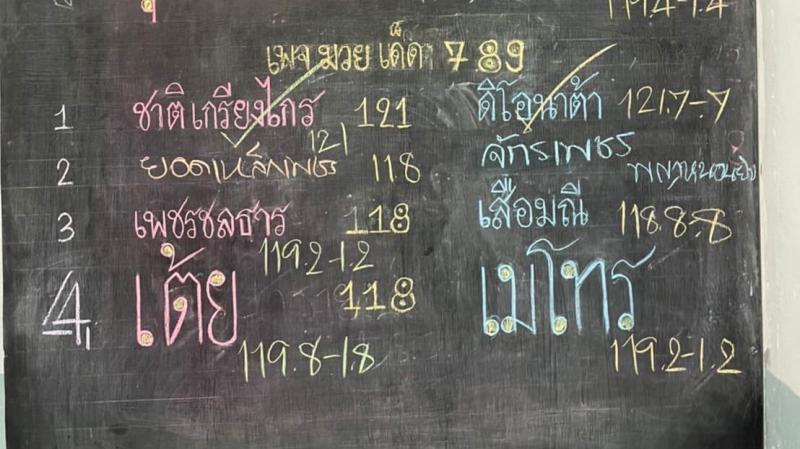 119.4-1.4
เพจ มวย เด็ด 789
1 ชาติเกรียงไกร 121 ดิโอนาต้า 121.7-.7
121
2 ยอดเหล็กเพชร 118 จักรเพชร
3 เพชรชลธาร 118 เสือมณี 118.8-.8
119.2-1.2
4 เต้ย 118 เมโทร
119.8-1.8 119.2-1.2